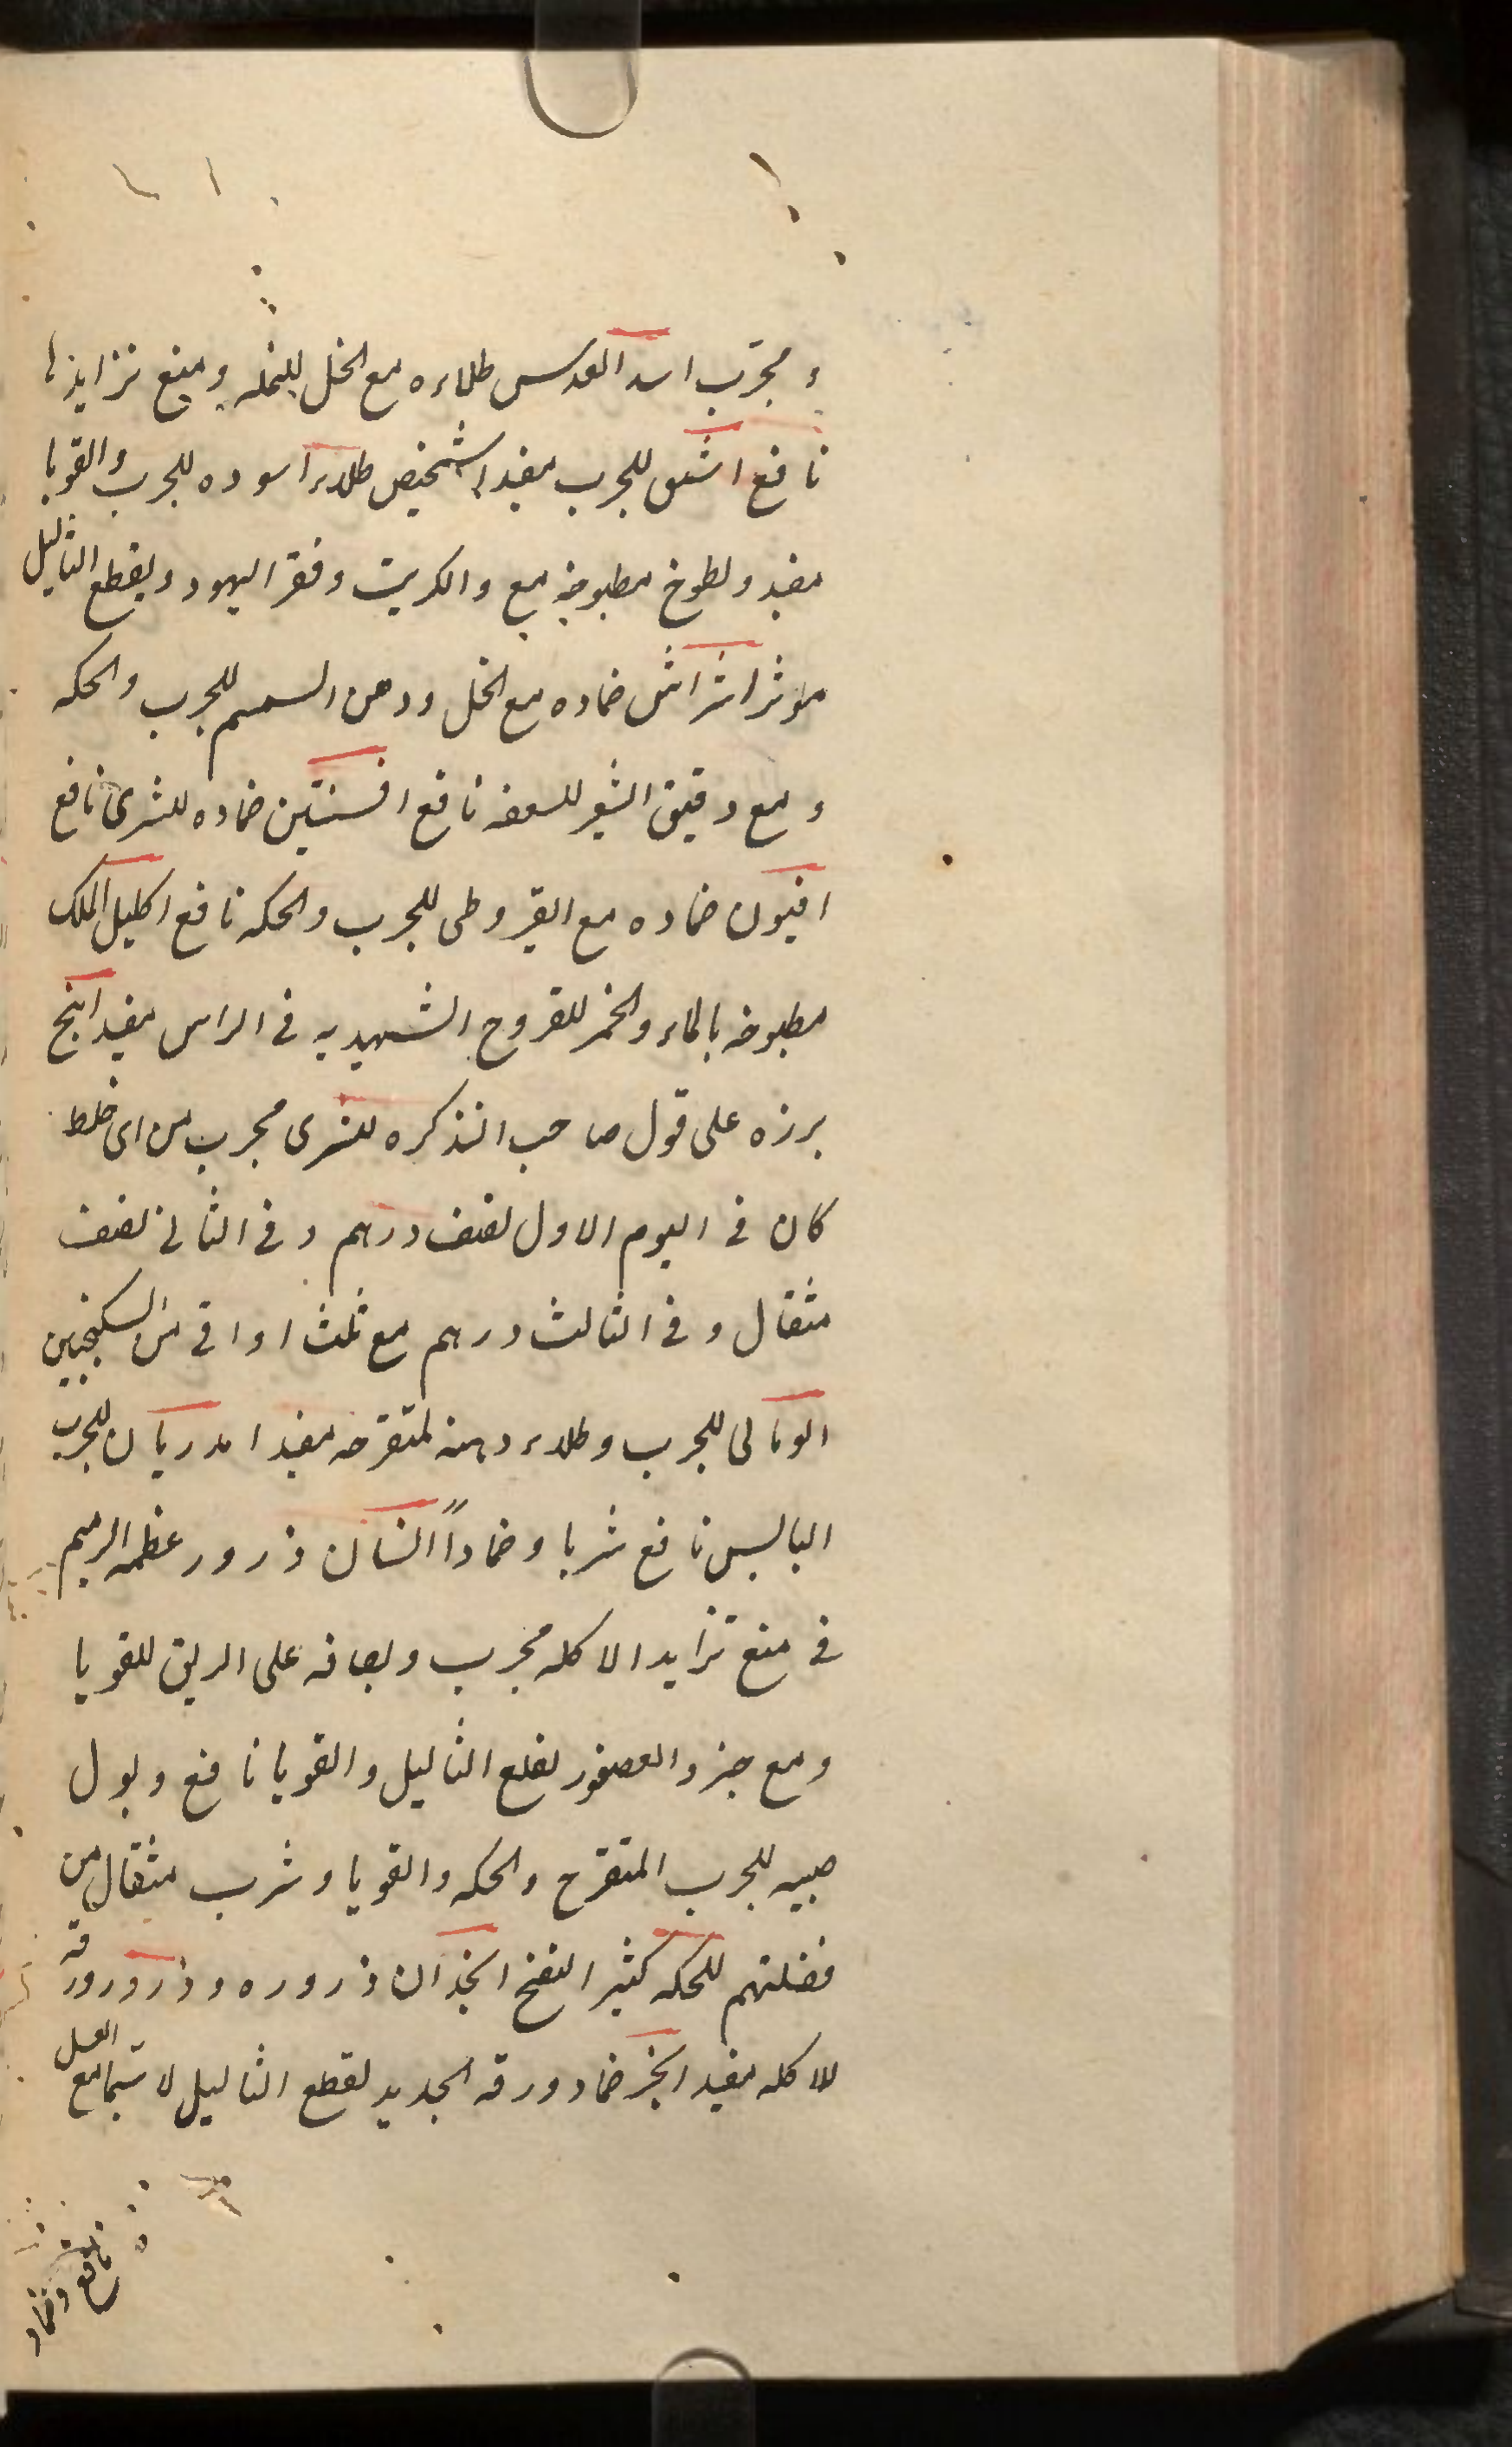 و مجرّب اسد العدس طلاءه مع الخل للنمله ومنع تزايدها
نافع اشق للجرب مفيد اشخيص طلاء اسوده للجرب والقوبا
مفيد ولطوخ مطبوخه مع والكبريت وفقر اليهود ويقطع الثاليل
موثر اشراش ضماده مع الخل ودهن السمسم للجرب والحكه
و مع دقيق الشعير للسعفه نافع افسنتين ضماده للشرى نافع
افيون ضماده مع القيروطى للجرب والحكه نافع اكليل الملك
مطبوخه بالماء والخمر للقروح الشهديه فى الراس مفيد ابنج
برزه على قول صاحب التذكره للشرى مجرب من اى خلط
كان فى اليوم الاول نصف درهم و فى الثانى نصف
مثقال و فى الثالث درهم مع ثلث اواقى من السكنجبين
الومالى للجرب وطلاء دهنه لمتقرحه مفيد امدريان للجرب
اليابس نافع شربا وضماداً انسان ذرور عظمه الرميم
فى منع تزايد الاكله مجرب وبصاقه على الريق للقوبا
ومع خرو العصفور لقلع الثاليل والقوبا نافع وبول
صبيه للجرب المتقرح والحكه والقوبا وشرب مثقال من
فضلتهم للحكه كثير النفخ انجذان ذروره وذرور ورقه
للاكله مفيد انجز ضماد ورقه الجديد لقطع الثاليل لا سيّما مع العسل
نافع وضماد